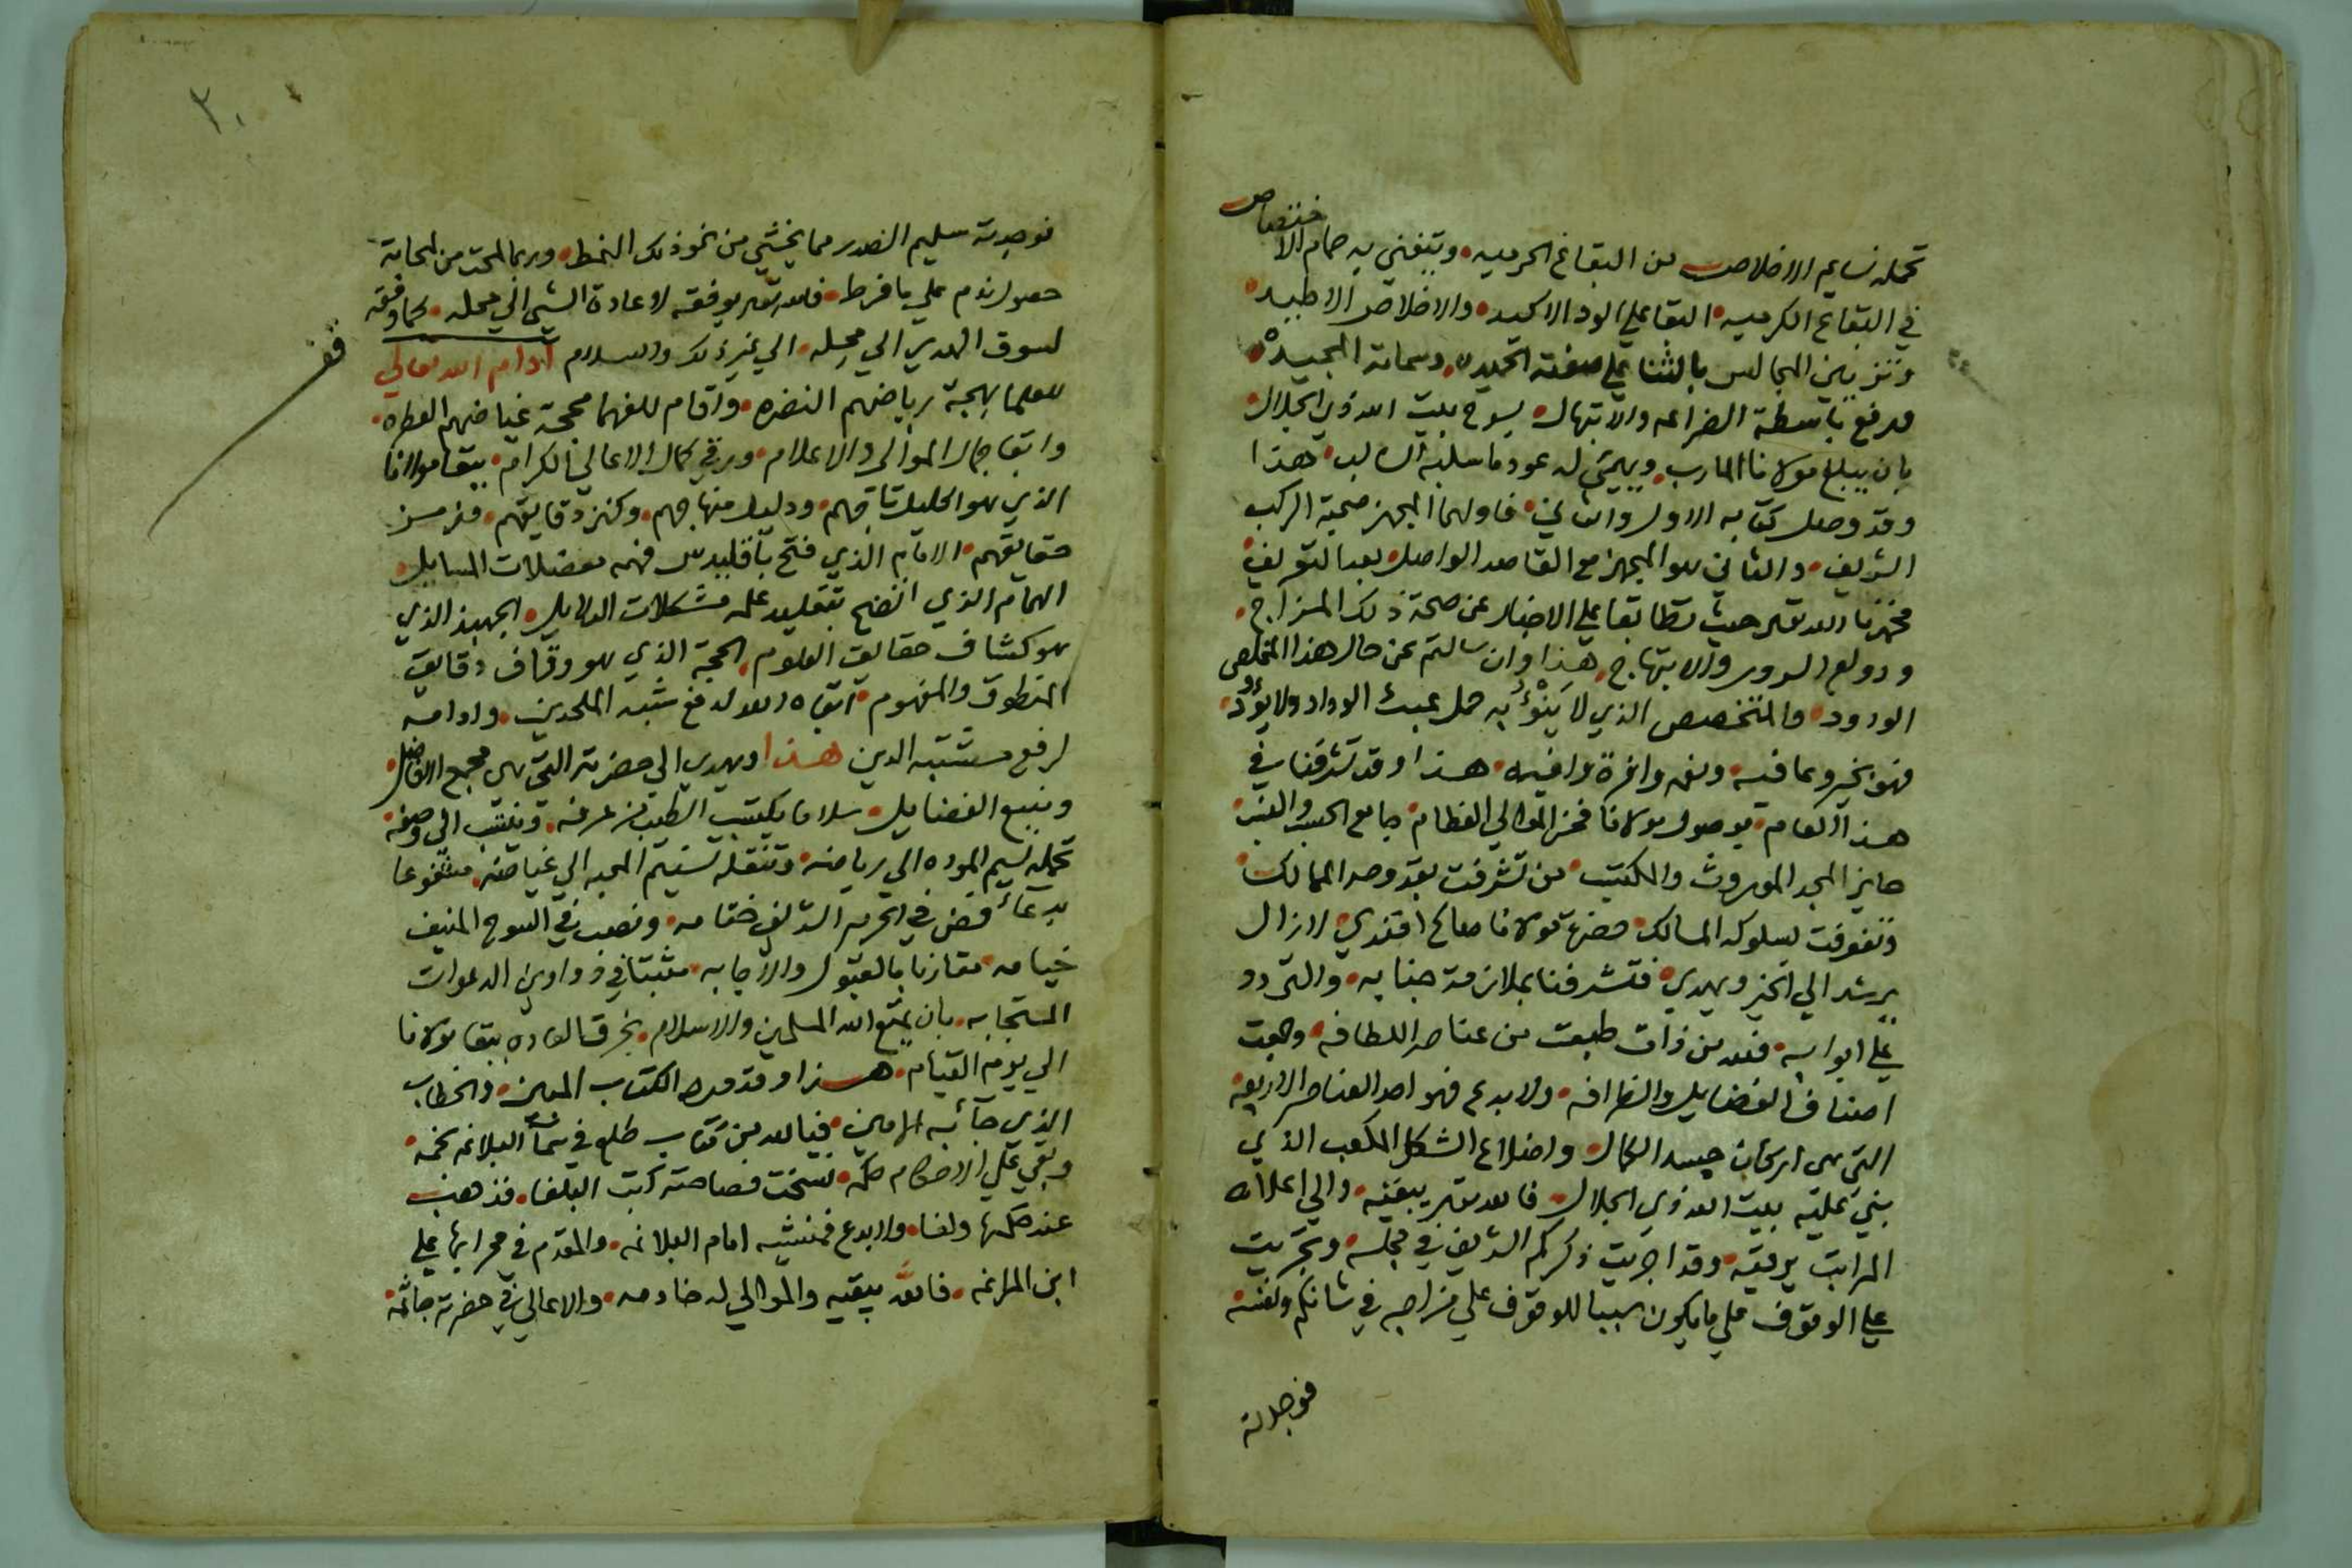 تحمله نسايم الاخلاص من البقاع الحرميه • ويتغني به حمام الاختصاص
في البقاع الكرميه • البقا علي الود الاكيد • والاخلاص الاطيد •
وتزيين المجالس بالثنا علي صفته الحميده • وسماته المجيده •
ورفع باسطة الضراعه والابتهال بسوح بيت الله ذي الجلال •
بان يبلغ مولانا المارب • ويهيئ له عود ما سلبه السالب • هذا
وقد وصل كتابه الاول والثاني • فاولهما المجهز صحبة الركب
الشريف • والثاني هو المجهز مع القاصد الواصل بعد التعريف •
فحمدنا الله تعالى حيث تطابقا علي الاخبار عن صحة ذلك المزاج •
ودولع السرور والابتهاج • هذا وان سالتم عن حال هذا المخلص
الودود • والمتخصص الذي لا ينوء به حمل عبث الوداد ولا يؤد •
فهو بخير وعافيه • ونعم وافرة وافيه • هذا وقد تشرفنا في
هذا العام • بوصول مولانا فخر الموالي العظام • جامع الحسب والنسب •
حايز المجد الموروث والمكتسب • من تشرفت بقدومه الممالك •
وتفوفت لسلوكه المسالك • حضرة مولانا صالح افندي • لا زال
يرشد الي الخير ويهدي • فتشرفنا بملازمة جنابه • والتردد
علي ابوابه • فلله من ذات طبعت من عناصر اللطافه • وجمعت
اصناف الفضايل والظرافه • ولا بدع فهو احد العناصر الاربعه
التي هي اركان جسد الكمال • واضلاع الشكل المكعب الذي
بني عليه بيت الله ذي الجلال • فالله تعالى يبقيه • والي اعلاه
المراتب يرقيه • وقد اجريت ذكركم الشريف في مجلسه • وتجريت
علي الوقوف علي ما يكون سببا للوقوف علي مزاجه في شانكم ونفسه •
فوجدته
٣٠
فوجدته سليم الصدر مما يخشي من نحو ذلك النمط • وربما لمحت من لمحاته
حصول ندم علي ما فرط • فالله تعالى يوفقه لاعادة الشي الي محله • كما وفقه
لسوق الهدي الي محله • الي غير ذلك والسلام ادام الله تعالي
للعلما بهجة رياضهم النضره • واقام للفهما محجة غياضهم العطره •
وابقا جمال الموالي والاعلام • ورقي كمال الاعالي الكرام • ببقا مولانا
الذي هو اكليل تاجهم • ودليل منهاجهم • وكنز دقايقهم •
حقايقهم • الامام الذي فتح باقليدس فهمه معضلات المسايل •
الهمام الذي اتضح بتقليد علمه مشكلات الدلايل • الجهبذ الذي
هو كشاف حقايق العلوم • الحجة الذي هو وقاف دقايق
المنطوق والمفهوم • ابقاه الله لدفع شبه الملحدين • وادامه
لرفع مشتبه الدين هذا ويهدي الي حضرته التي هي مجمع الافاضل •
ومنبع الفضايل • سلاما يكتسب الطيب من عرفه • وينتسب الي وصفه •
تحمله نسيم الموده الي رياضه • وتنقله نسيم المحبه الي غياضه • مشفوعا
بدعاء فض في الحرم الشريف ختامه • ونصب في السوح المنيف
خيامه • مقارنا بالقبول والاجابه • مثبتا في دواوين الدعوات
المستجابه • بان يمتع الله المسلمين والاسلام • بخرق العاده ببقا مولانا
الي يوم القيام • هذا وقد ورد الكتاب المبين • والخطاب
الذي جآئبه الامين • فيالله من كتاب طلع في سماء البلاغه نجمه •
وبقي علي الاحكام حكمه • نسخت فصاحته كتب البلغا • فذهب
عند حكمها ولغا • ولا بدع فمنشيه امام البلاغه • والمقدم في محرابها علي
ابن المراغه • فالله يبقيه والموالي له خادمه • والاعالي في حضرته جاثمه •
فف